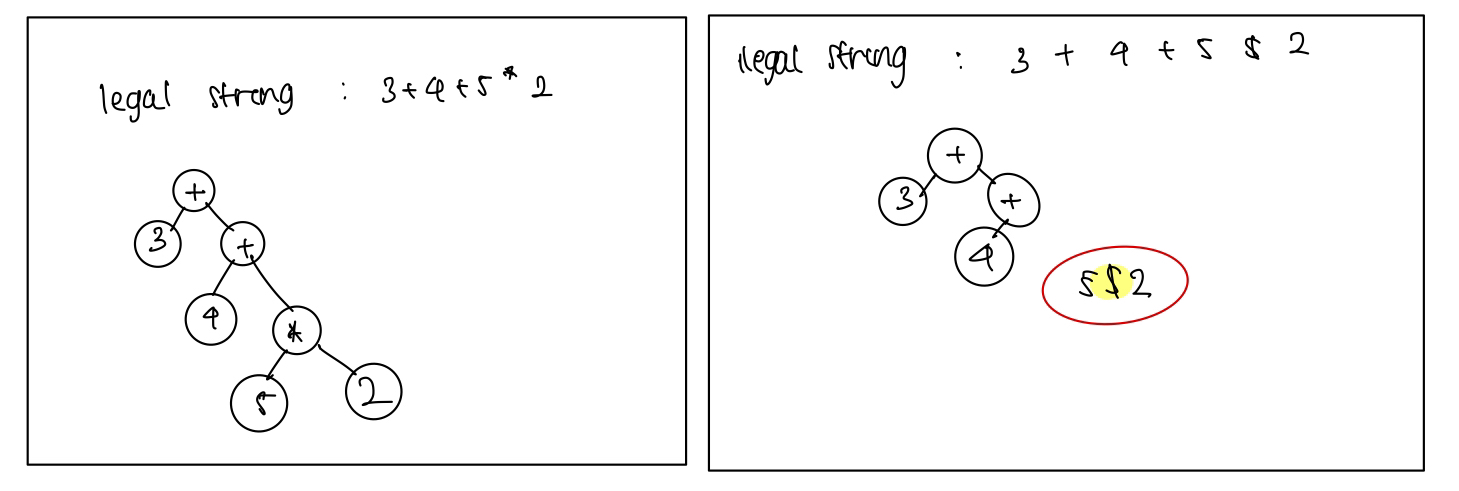 legal string : 3+4+5*2
+
3
+
4
*
5
2
illegal string : 3 + 4 + 5 $ 2
+
3
+
4
5$2